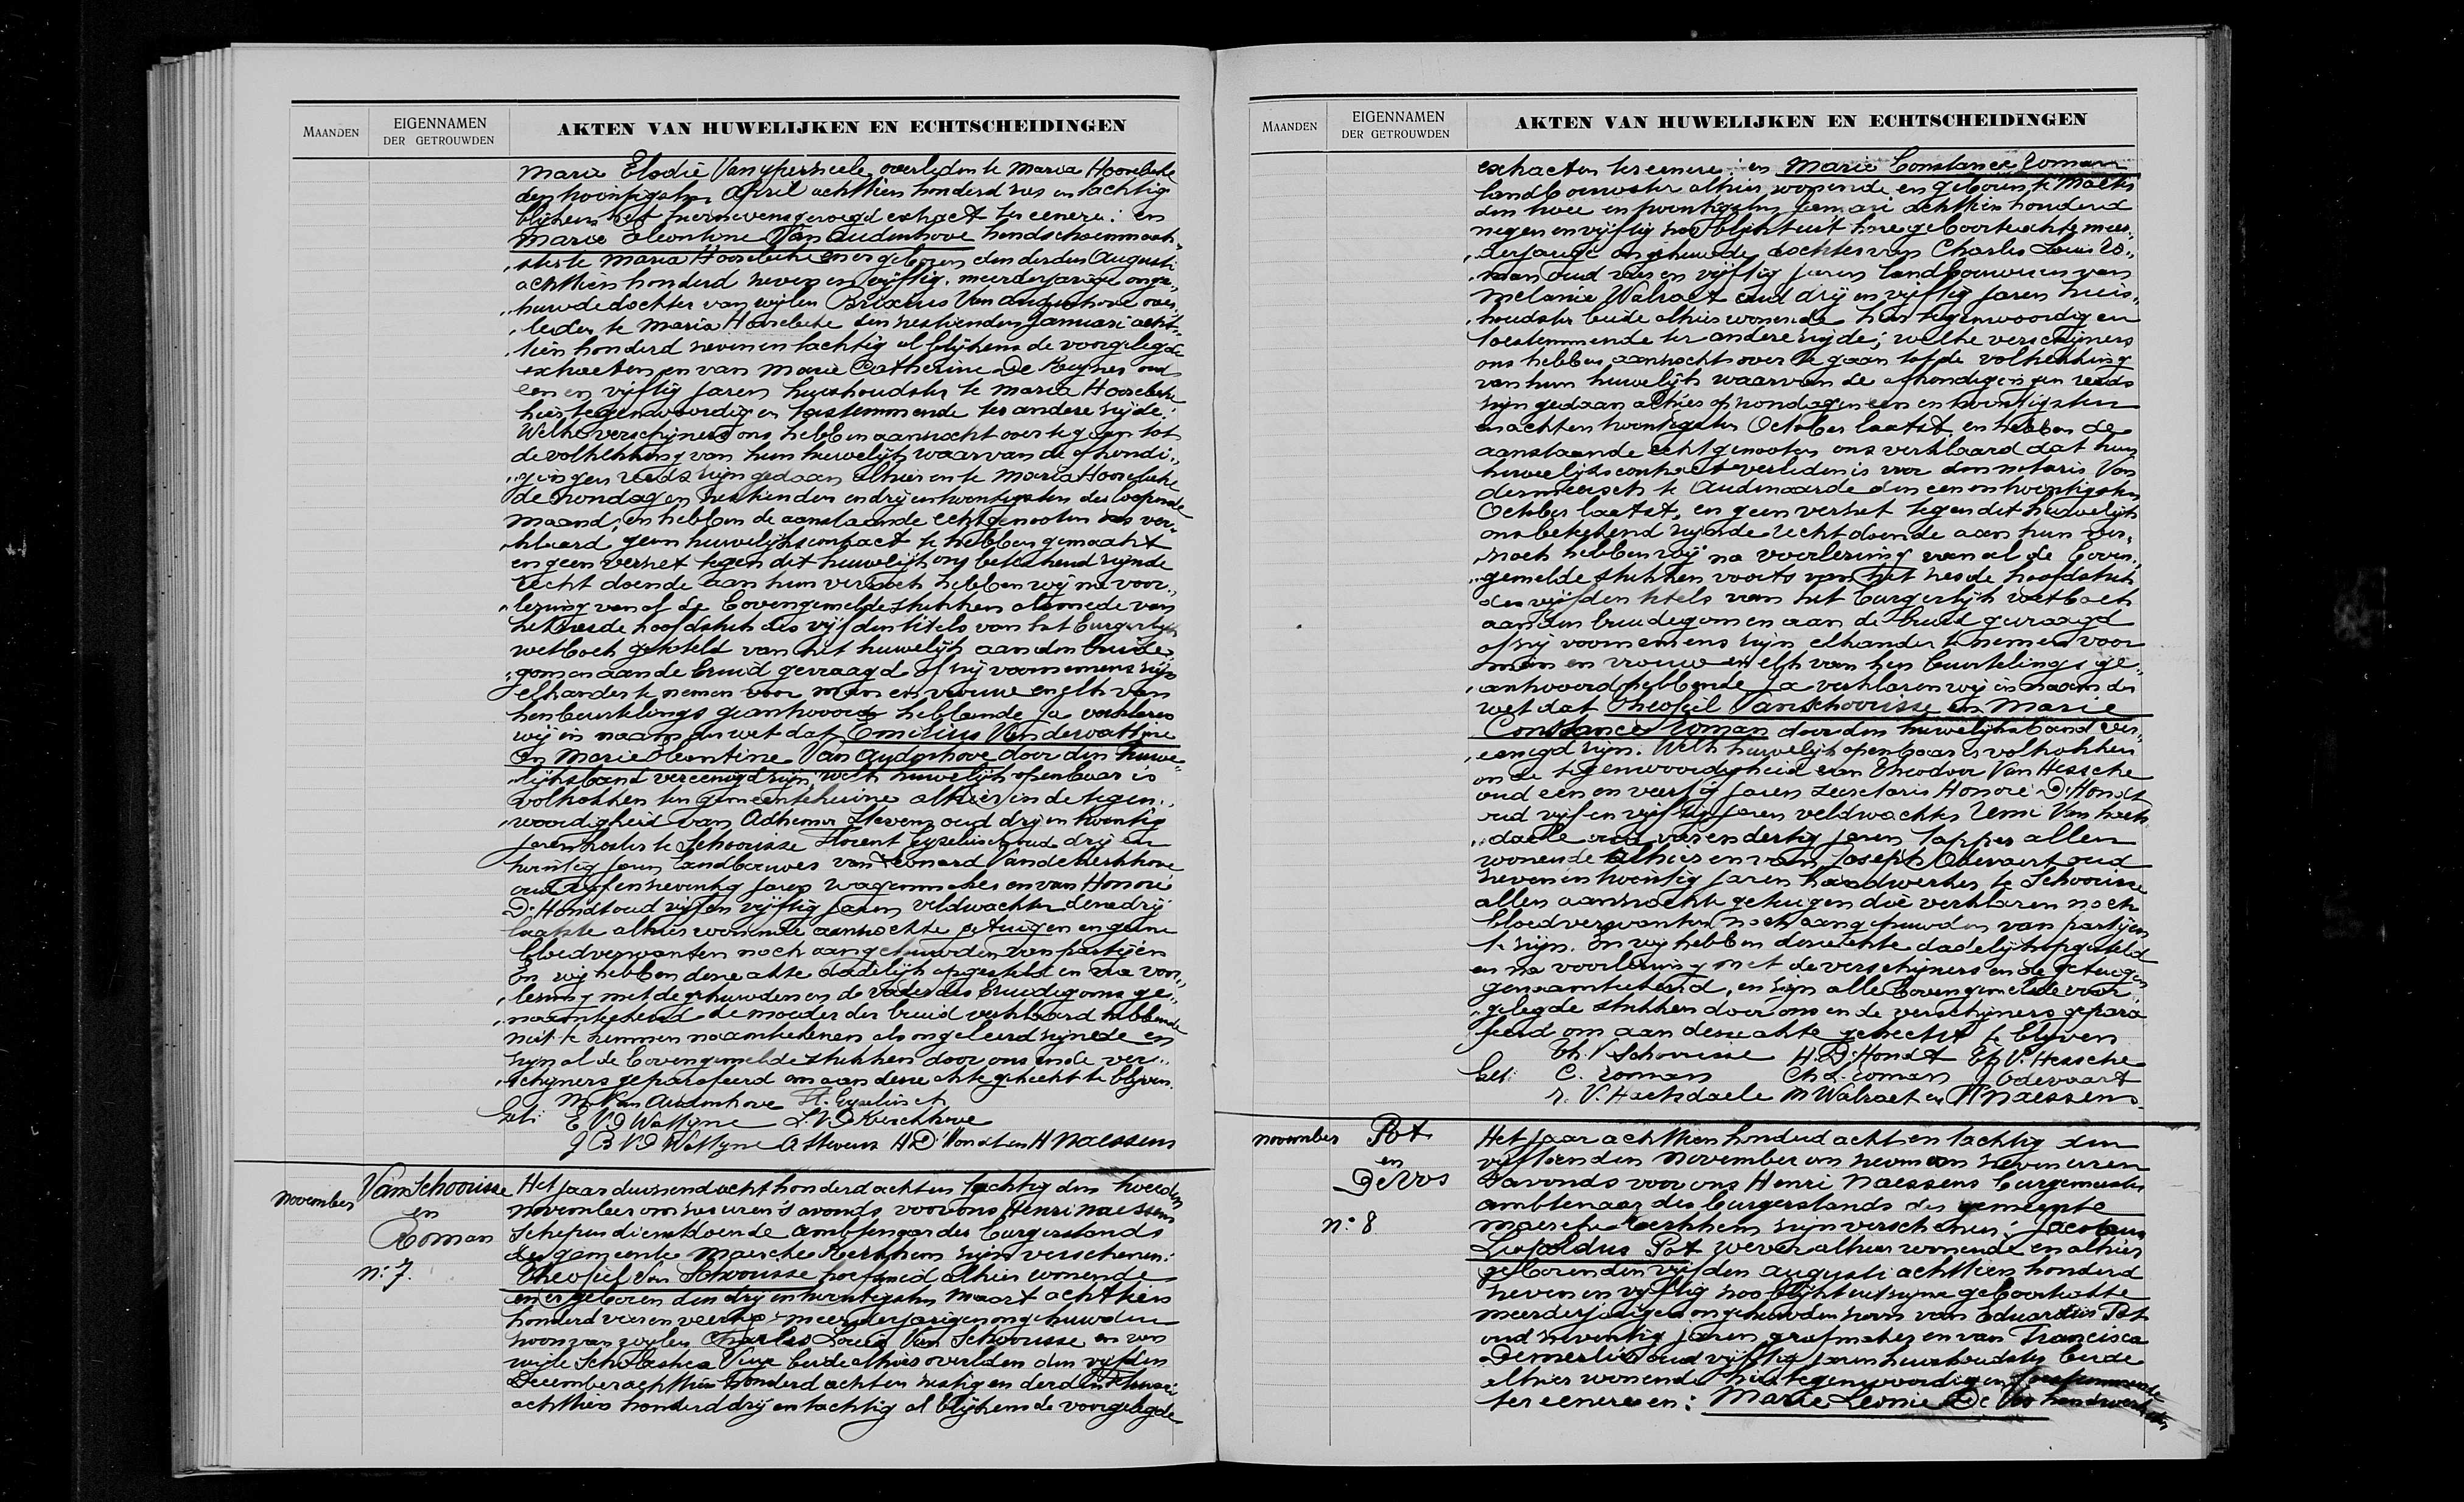 MAANDEN
EIGENNAMEN
DER GETROUWDEN
AKTEN VAN HUWELIJKEN EN ECHTSCHEIDINGEN
Marie Elodie Vanyperseele, overleden te Maria Hoorebeke
den twintigsten April achttien honderd zes en tachtig
blijkens het hiernevensgevoegd extract ter eenere: en
Marie Eleontine Van Audenhove handschoenmaak„
„ster te Maria Hoorebeke en er geboren den derden Augusti
achttien honderd zeven en vijftig, meerderjarige onge„
„huwde dochter van wijlen Brixius Van Audenhove over„
„leden te Maria Hoorebeke den zestienden Januari acht„
„tien honderd zeven en tachtig al blijkens de voorgelegde
extracten en van Marie Catherine De Ruyver oud
een en vijftig jaren huishoudster te Maria Hoorebeke
hier tegenwoordig en toestemmende ter andere zijde:
Welke verschijners ons hebben aanzocht over te gaan tot
de voltrekking van hun huwelijk waarvan de afkondi„
„gingen reeds zijn gedaan alhier en te Maria Hoorebeke
de zondagen zestienden en drij en twintigsten der loopende
maand, en hebben de aanstaande echtgenooten ons ver„
„klaard geen huwelijkscontract te hebben gemaakt
en geen verzet tegen dit huwelijk ons betekend zijnde
recht doende aan hun verzoek hebben wij na voor„
„lezing van al de bovengemelde stukken alsmede van
het zesde hoofdstuk des vijfden titels van het burgerlijk
wetboek getiteld van het huwelijk aan den bruide„
„gom en aan de bruid gevraagd of zij voornemens zijn
elkander te nemen voor man en vrouw en elk van
hen beurtelings geantwoord hebbende Ja verklaren
wij in naam der wet dat Emilius Vandewattyne
en Marie Eleontine Van Audenhove door den huwe„
„lijksband vereenigd zijn, welk huwelijk openbaar is
voltrokken ten gemeentehuize alhier in de tegen„
„woordigheid van Adhemar Stevens oud drij en twintig
jaren koster te Schoorisse Florent Eyselinck oud drij en
twintig jaren landbouwer van Leonard Vandekerkhove
oud vijf en zeventig jaren wagenmaker en van Honoré
D'Hondt oud vijf en vijftig jaren veldwachter deze drij
laatste alhier wonende aanzochte getuigen en geene
bloedverwanten noch aangehuwden van partijen
En wij hebben deze akte dadelijk opgesteld en na voor„
„lezing met de gehuwden en de vader des bruidegoms ge„
„naamtekend de moeder der bruid verklaard hebbende
niet te kunnen naamtekenen als ongeleerd zijnde en
zijn al de bovengemelde stukken door ons ende ver„
„schijners geparafeerd om aan deze akte gehecht te blijven.
M Van Audenhove Fl. Eyselinck
Get: E V D Wattyne L. V D Kerckhove
J B V D Wattyne A Stevens H D'Hondt en H Naessens
November
Van Schoorisse
en
Roman
n: 7.
Het jaar duizend acht honderd acht en tachtig den tweeden
November om zes uren 's avonds voor ons Henri Naessens
Schepen dienstdoende ambtenaar des burgerstands
der gemeente Maercke Kerkhem zijn verschenen:
Theofiel Van Schoorisse hoefsmid alhier wonende
en er geboren den drij en twintigsten Maart achttien
honderd vier en veertig meerderjarigen ongehuwden
zoon van wijlen Charles Louis Van Schoorisse en van
wijle Scholastica Vuye beide alhier overleden den vijfden
December achttien honderd acht en zestig en derden
achttien honderd drij en tachtig al blijkens de voorgelegde
MAANDEN
EIGENNAMEN
DER GETROUWDEN
AKTEN VAN HUWELIJKEN EN ECHTSCHEIDINGEN
extracten ter eenere: en Marie Constance Roman
landbouwster alhier wonende en geboren te Mater
den twee en twintigsten Januari achttien honderd
negen en vijftig zoo blijkt uit hare geboorteakte meer„
„derjarige ongehuwde dochter van Charles Louis Ro„
„man oud zes en vijftig jaren landbouwer en van
Melanie Walraet oud drij en vijftig jaren huis„
„houdster beide alhier wonende hier tegenwoordig en
toestemmende ter andere zijde; welke verschijners
ons hebben aanzocht over te gaan tot de voltrekking
van hun huwelijk waarvan de afkondigingen reeds
zijn gedaan alhier op zondagen een en twintigsten
en acht en twintigsten October laatst, en hebben de
aanstaande echtgenooten ons verklaard dat hun
huwelijkscontract verleden is voor den notaris Van
dermeersch te Audenaarde den een en twintigsten
October laatst, en geen verzet tegen dit huwelijk
ons betekend zijnde recht doende aan hun ver„
„zoek hebben wij na voorlezing van al de boven„
„gemelde stukken voorts van het zesde hoofdstuk
des vijfden titels van het burgerlijk wetboek
aan den bruidegom en aan de bruid gevraagd
of zij voornemens zijn elkander te nemen voor
man en vrouw en elk van hen beurtelings ge„
„antwoord hebbende Ja verklaren wij in naam der
wet dat Theofiel Van Schoorisse en Marie
Constance Roman door den huwelijksband ver„
„eenigd zijn. Welk huwelijk openbaar is voltrokken
in de tegenwoordigheid van Theodoor Van Hessche
oud een en veertig jaren secretaris Honoré D'Hondt
oud vijf en vijftig jaren veldwachter Remi Van Haets
„daele oud vier en dertig jaren tapper allen
wonende alhier en van Joseph Odevaert oud
zeven en twintig jaren handwerker te Schoorisse
allen aanzochte getuigen die verklaren noch
bloedverwanten noch aangehuwden van partijen
te zijn. En wij hebben deze akte dadelijk opgesteld
en na voorlezing met de verschijners en de getuigen
genaamtekend, en zijn alle bovengemelde voor„
„gelegde stukken door ons en de verschijners gepara
feerd om aan deze akte gehecht te blijven
Th. V Schoorisse H. D'Hondt Th V. Hessche
Get: C. Roman Ch L. Roman J Odevaart
r. V. Haetsdaele M Walraet en H Naessens
November
Pot
en
De Vos
n: 8
Het jaar achttien honderd acht en tachtig den
vijftienden November om zeven uren
's avonds voor ons Henri Naessens burgemeester
ambtenaar des burgerstands der gemeente
Maercke Kerkhem zijn verschenen: Jacobus
Leopoldus Pot wever alhier wonende en alhier
geboren den vijfden Augusti achttien honderd
zeven en vijftig zoo blijkt uit zijne geboorteakte
meerderjarigen ongehuwden zoon van Eduardus Pot
oud zeventig jaren grafmaker en van Francisca
Demerlier oud vijftig jaren huishoudster beide
alhier wonende hier tegenwoordig en toestemmende
ter eenere en: Marie Leonie De Vos handwerkster